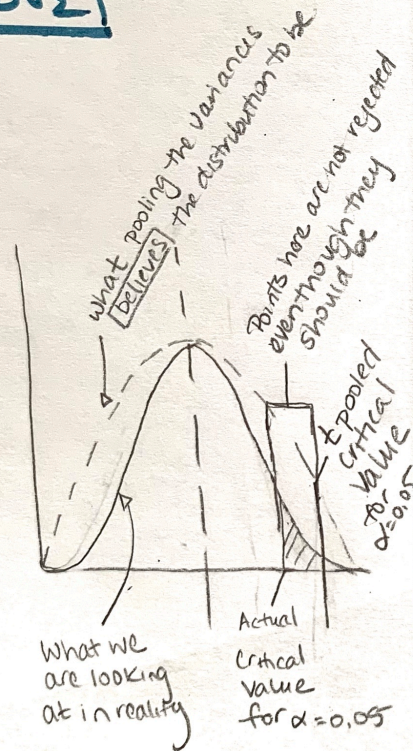 what pooling the variances
believes the distribution to be
Points here are not rejected
eventhough they
should be
t pooled
Critical
Value
for
α=0.05
What we
are looking
at in reality
Actual
Critical
Value
for α=0.05